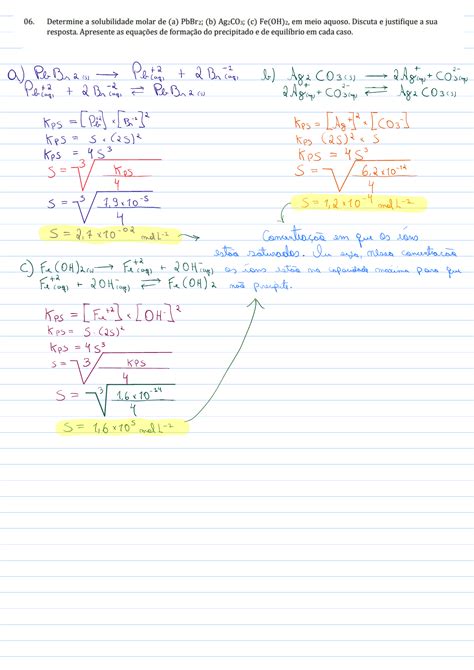 06. Determine a solubilidade molar de (a) PbBr₂; (b) Ag₂CO₃; (c) Fe(OH)₂, em meio aquoso. Discuta e justifique a sua
resposta. Apresente as equações de formação do precipitado e de equilíbrio em cada caso.
a) PbBr₂(s) → Pb⁺²(aq) + 2Br⁻¹(aq)
Pb⁺²(aq) + 2Br⁻²(aq) ⇌ PbBr₂(s)
Kps = [Pb⁺²] × [Br⁻¹]²
Kps = S · (2S)²
Kps = 4S³
S = ³√(Kps/4)
S = ³√(1,9×10⁻⁵/4)
S = 2,7×10⁻⁰² mol L⁻¹
b) Ag₂CO₃(s) → 2Ag⁺(aq) + CO₃⁻²(aq)
2Ag⁺(aq) + CO₃⁻²(aq) ⇌ Ag₂CO₃(s)
Kps = [Ag⁺]² × [CO₃⁻]
Kps (2S)² × S
Kps = 4S³
S = ³√(6,2×10⁻¹²/4)
S = 1,2×10⁻⁴ mol L⁻¹
Concentração em que os íons
estão saturados. Ou seja, nessa concentração
os íons estão na capacidade máxima para que
não precipite.
c) Fe(OH)₂(s) → Fe⁺²(aq) + 2OH⁻(aq)
Fe⁺²(aq) + 2OH⁻(aq) ⇌ Fe(OH)₂
Kps = [Fe⁺²] × [OH⁻]²
Kps = S · (2S)²
Kps = 4S³
S = ³√(Kps/4)
S = ³√(1,6×10⁻¹⁴/4)
S = 1,6×10⁵ mol L⁻¹